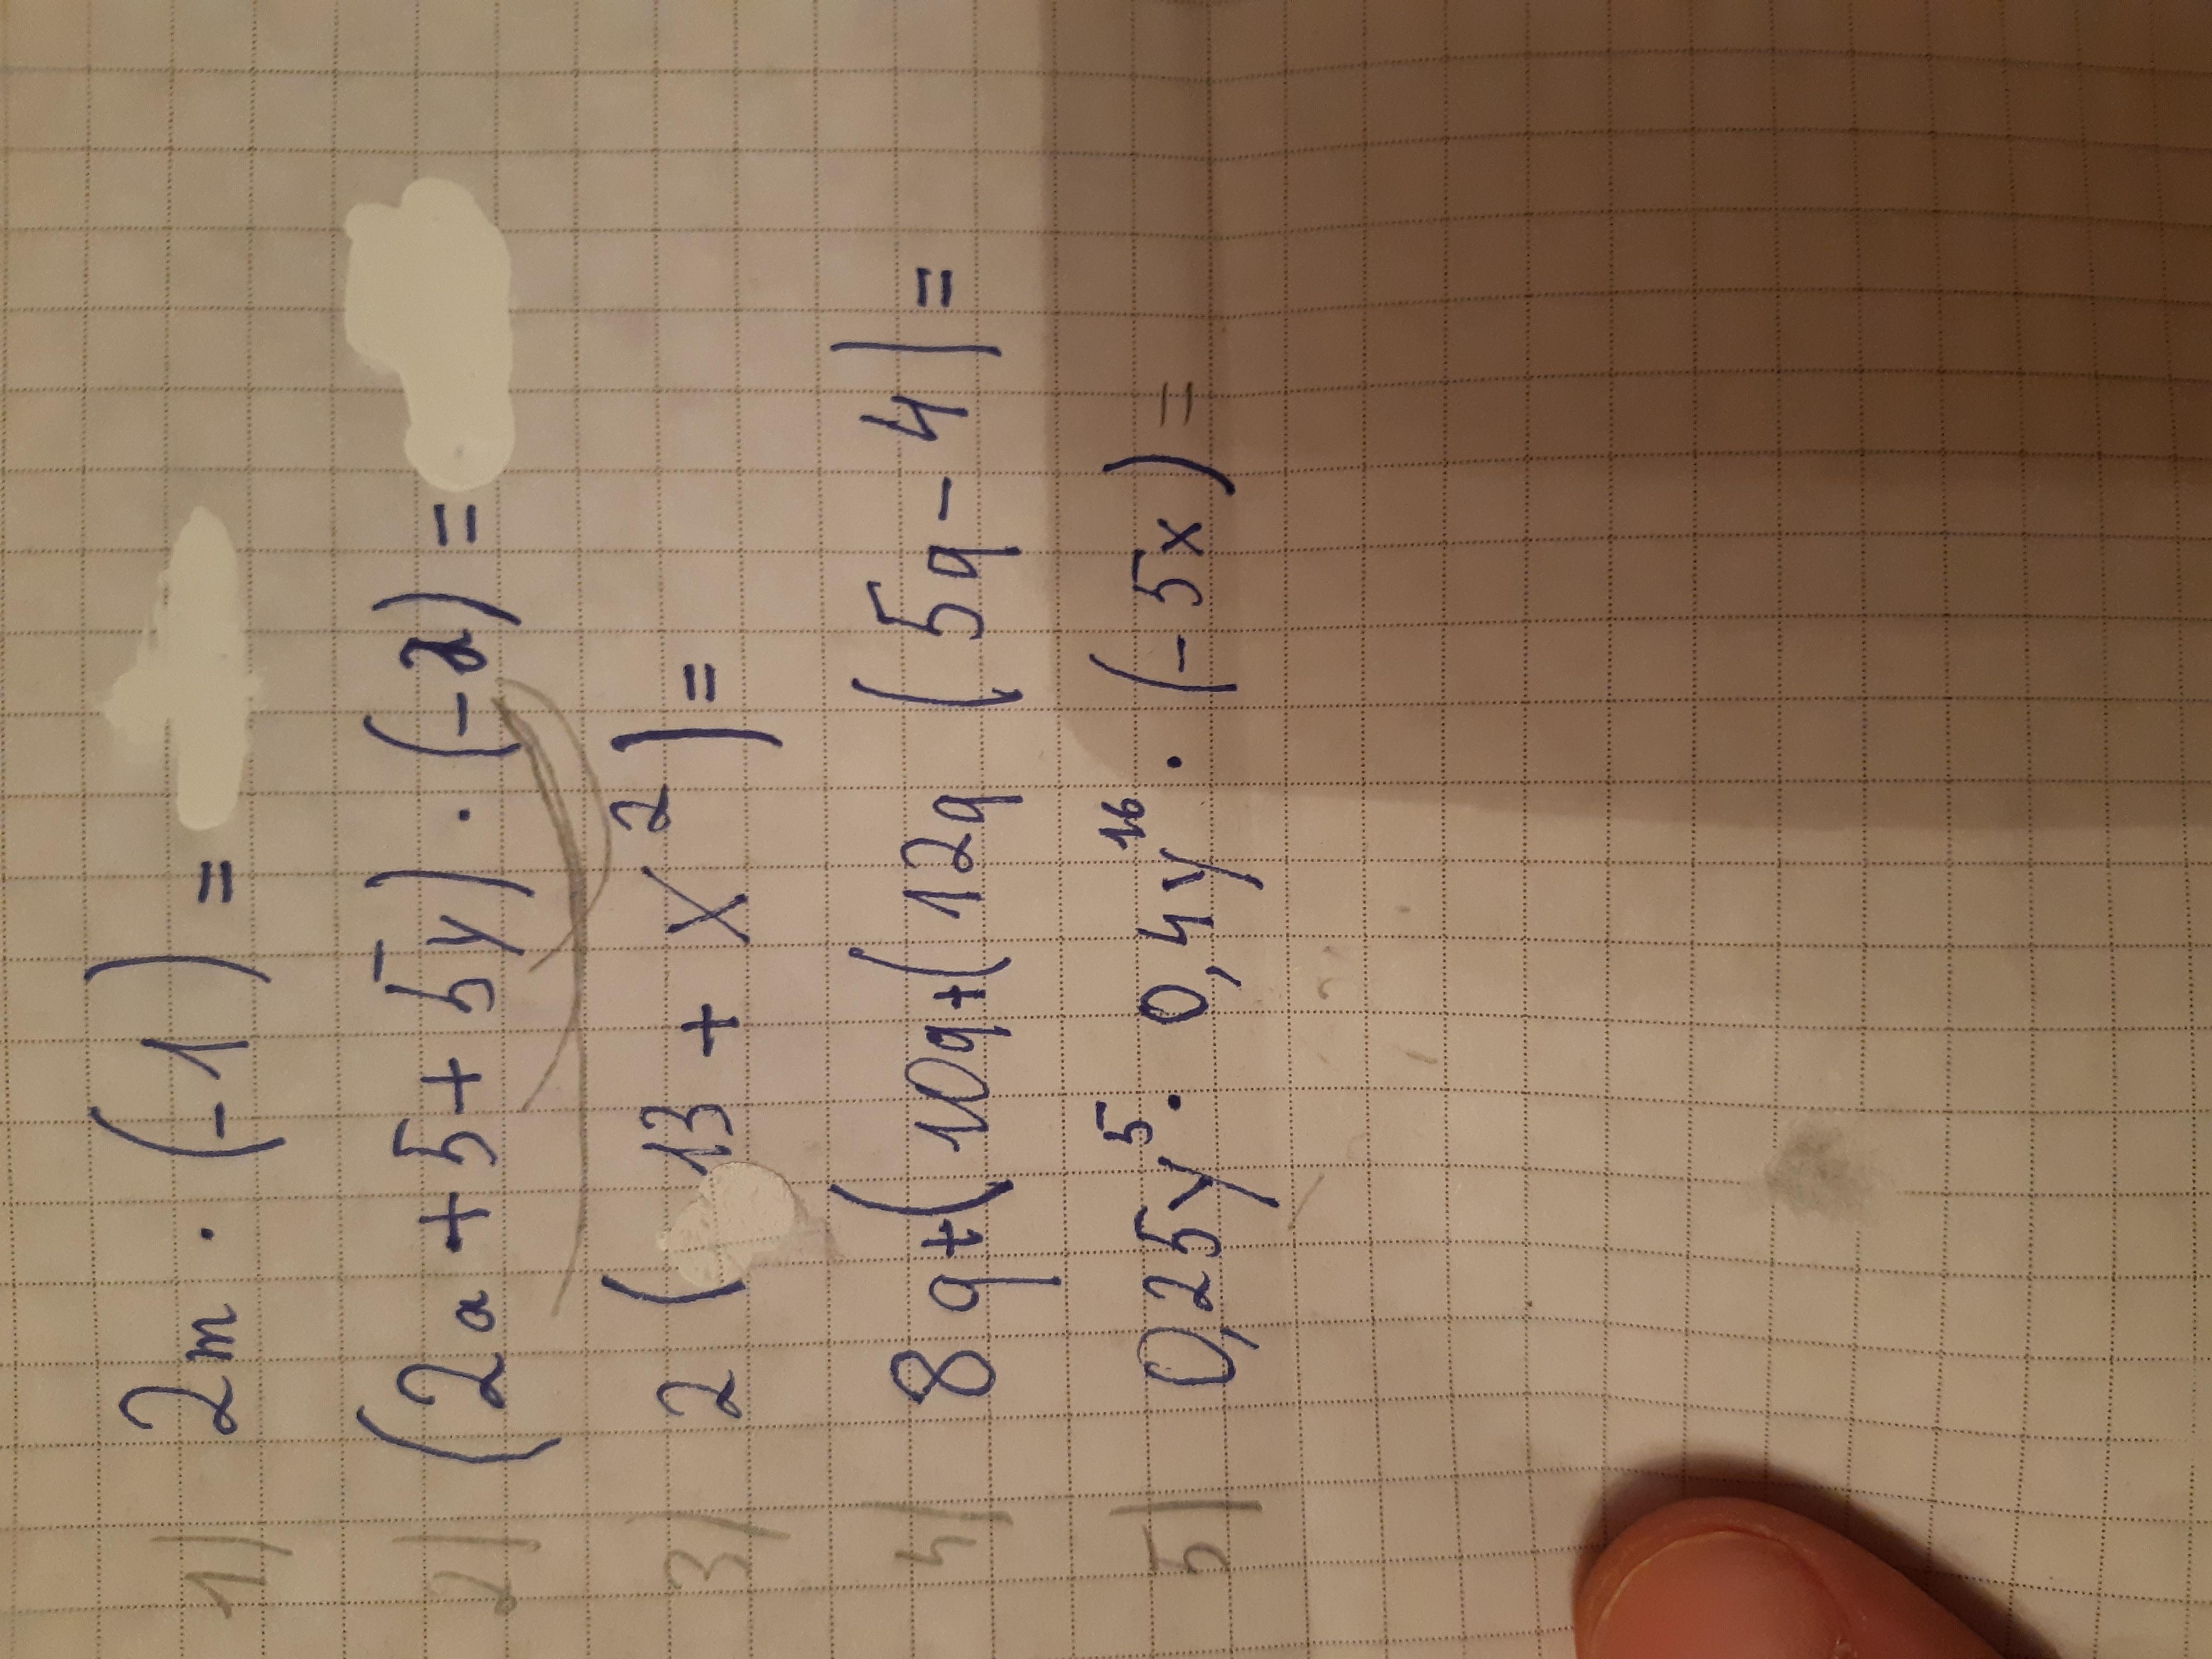 1) 2m · (-1) =
2) (2a + 5 + 5y) · (-2) =
3) 2 (13 + x²) =
4) 8q+(10q+(12q (5q-4) =
5) 0,25y⁵ · 0,4y¹⁶ · (-5x) =